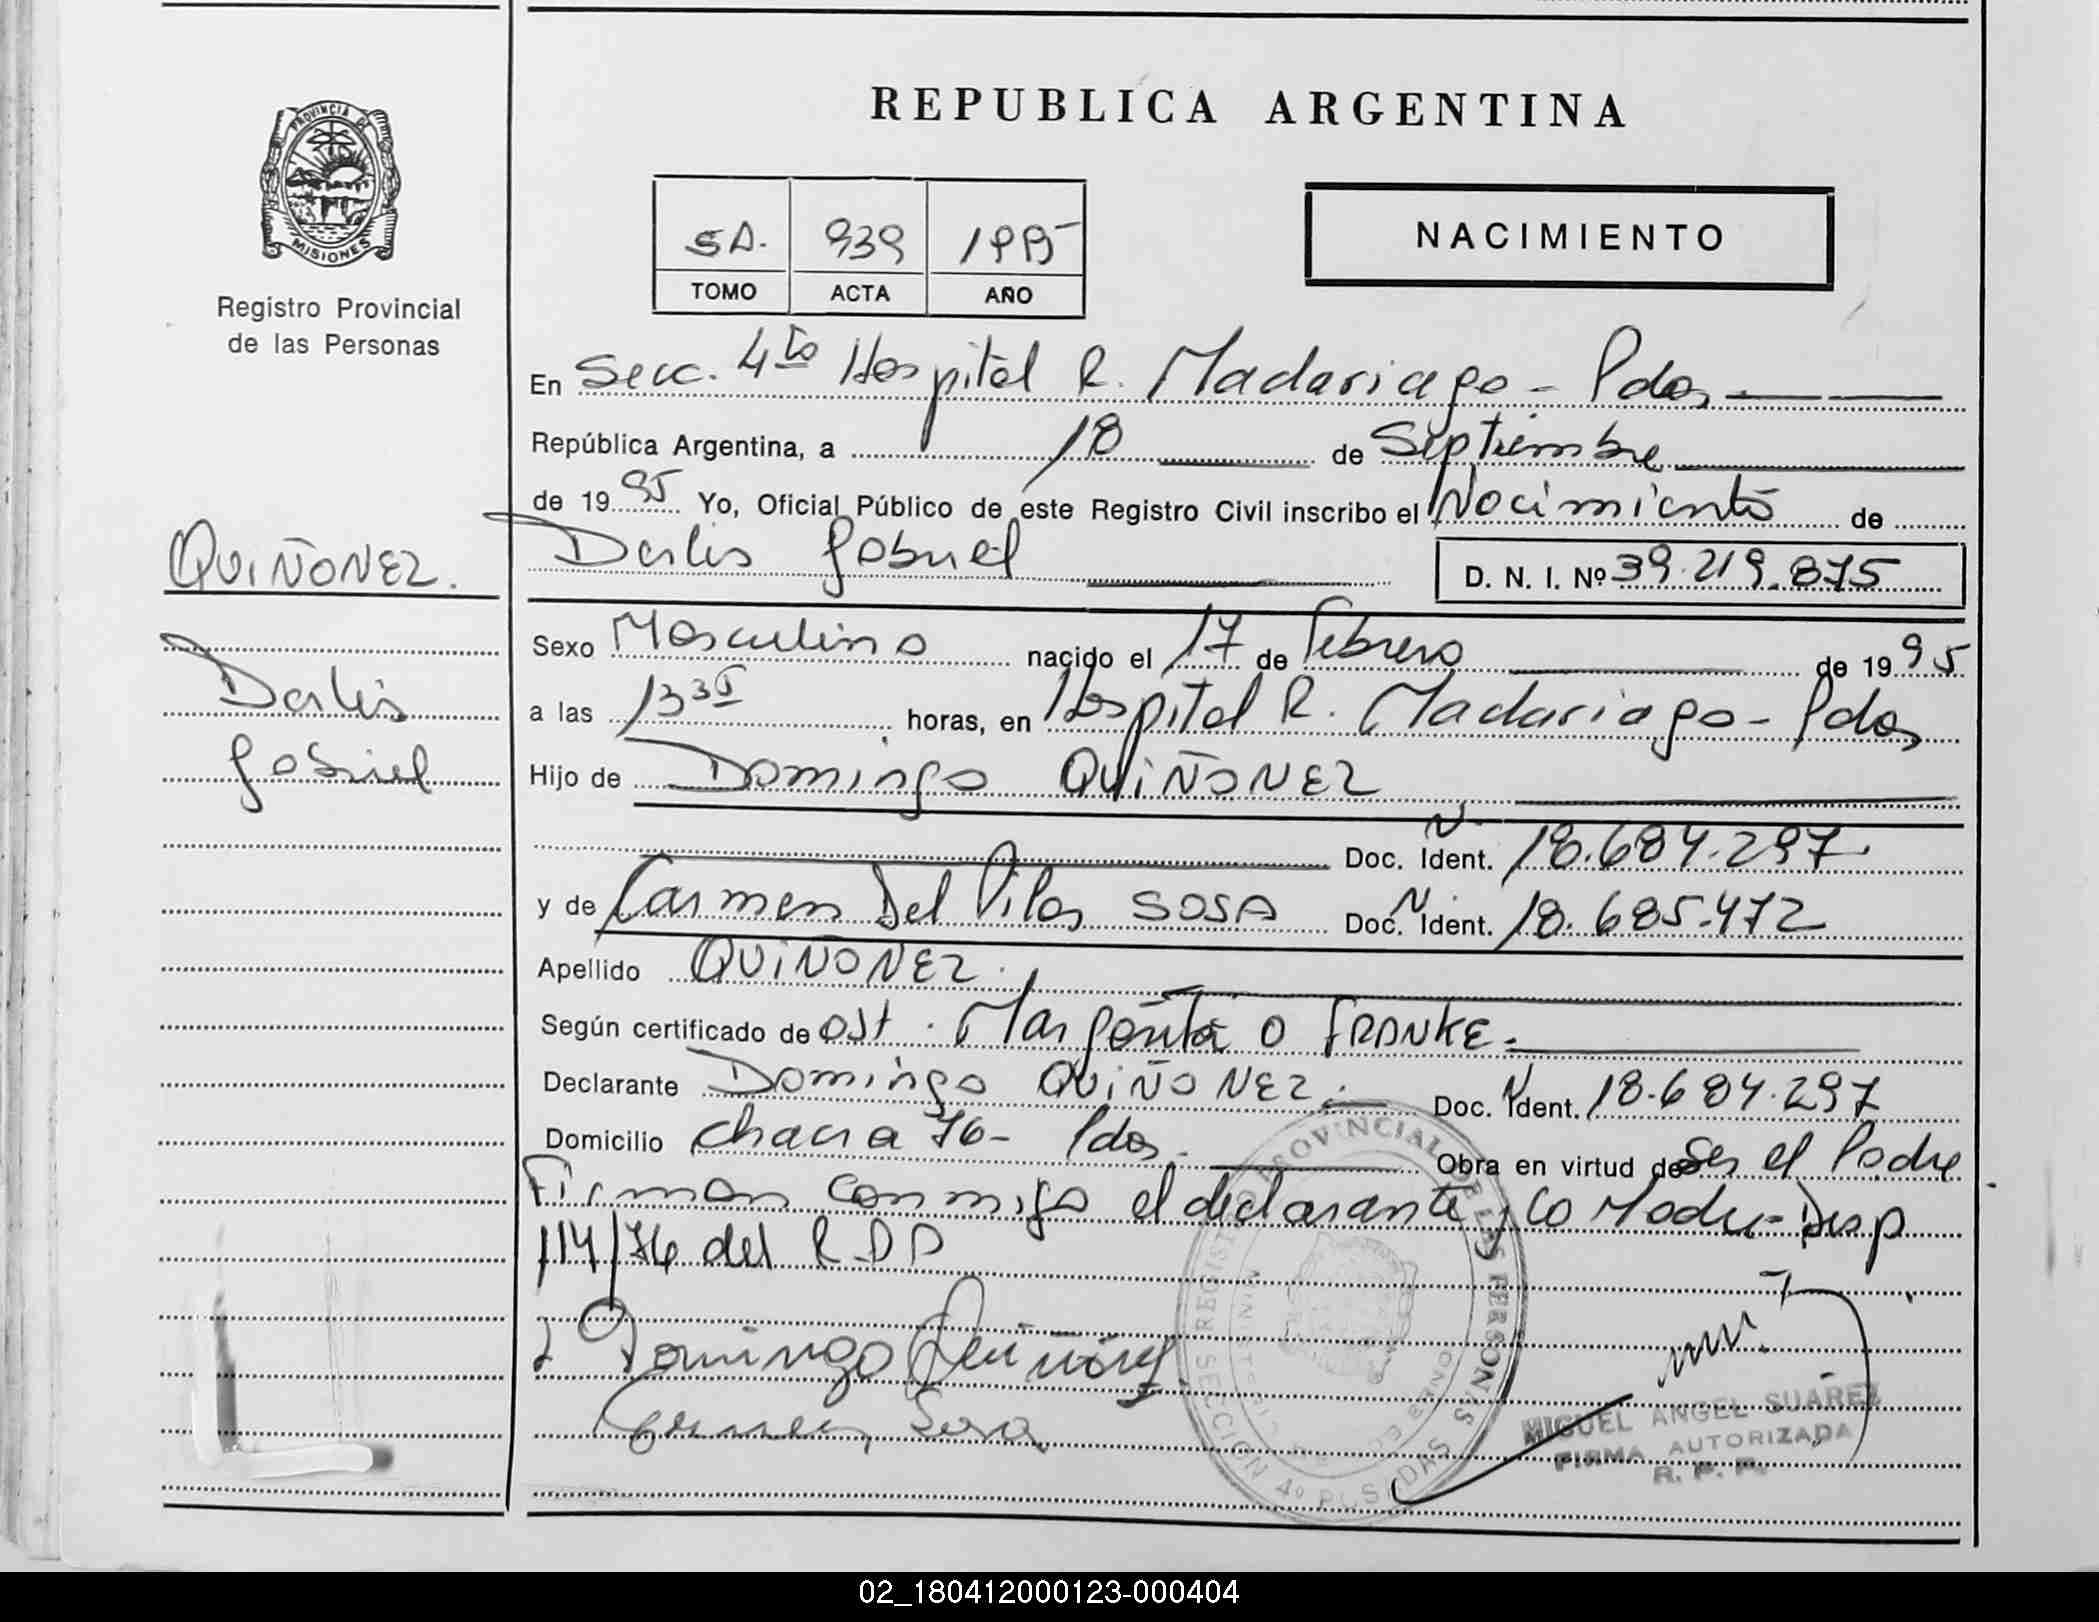 REPUBLICA ARGENTINA
PROVINCIA DE MISIONES
Registro Provincial
de las Personas
5A. 939 1995
TOMO ACTA AÑO
NACIMIENTO
En Secc. 4to Hospital R. Madariaga - Pdas
República Argentina, a 18 de Septiembre
de 1995 Yo, Oficial Público de este Registro Civil inscribo el Nacimiento de
Darlis Gabriel D. N. I. Nº 39.219.875
QUIÑONEZ.
Darlis
Gabriel
Sexo Masculino nacido el 17 de Febrero de 1995
a las 13 35 horas, en Hospital R. Madariaga - Pdas
Hijo de Domingo QUIÑONEZ
Doc. Ident. N. 18.684.297
y de Carmen Del Pilar SOSA Doc. Ident. N. 18.685.472
Apellido QUIÑONEZ.
Según certificado de Ost. Margarita O FRANKE.
Declarante Domingo QUIÑONEZ. Doc. Ident. N 18.684.297
Domicilio chacra 76- Pdas. Obra en virtud de Ser el Padre
Firman conmigo el declarante y la Madre- Disp
114/76 del R.P.P
Domingo Quiñónez
Carmen Sosa
REGISTRO PROVINCIAL DE LAS PERSONAS
SECCION 4º POSADAS
MIGUEL ANGEL SUAREZ
FIRMA AUTORIZADA
R. P. P.
02_180412000123-000404